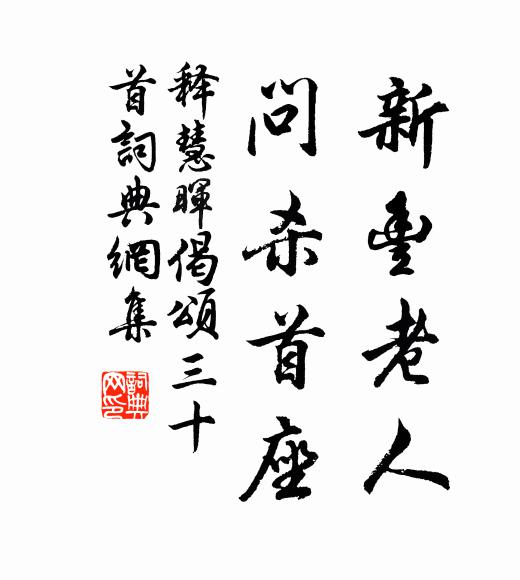 新豊老人
問杀首座
释慧暉偈頌三十
首詞典網集
詞典网印